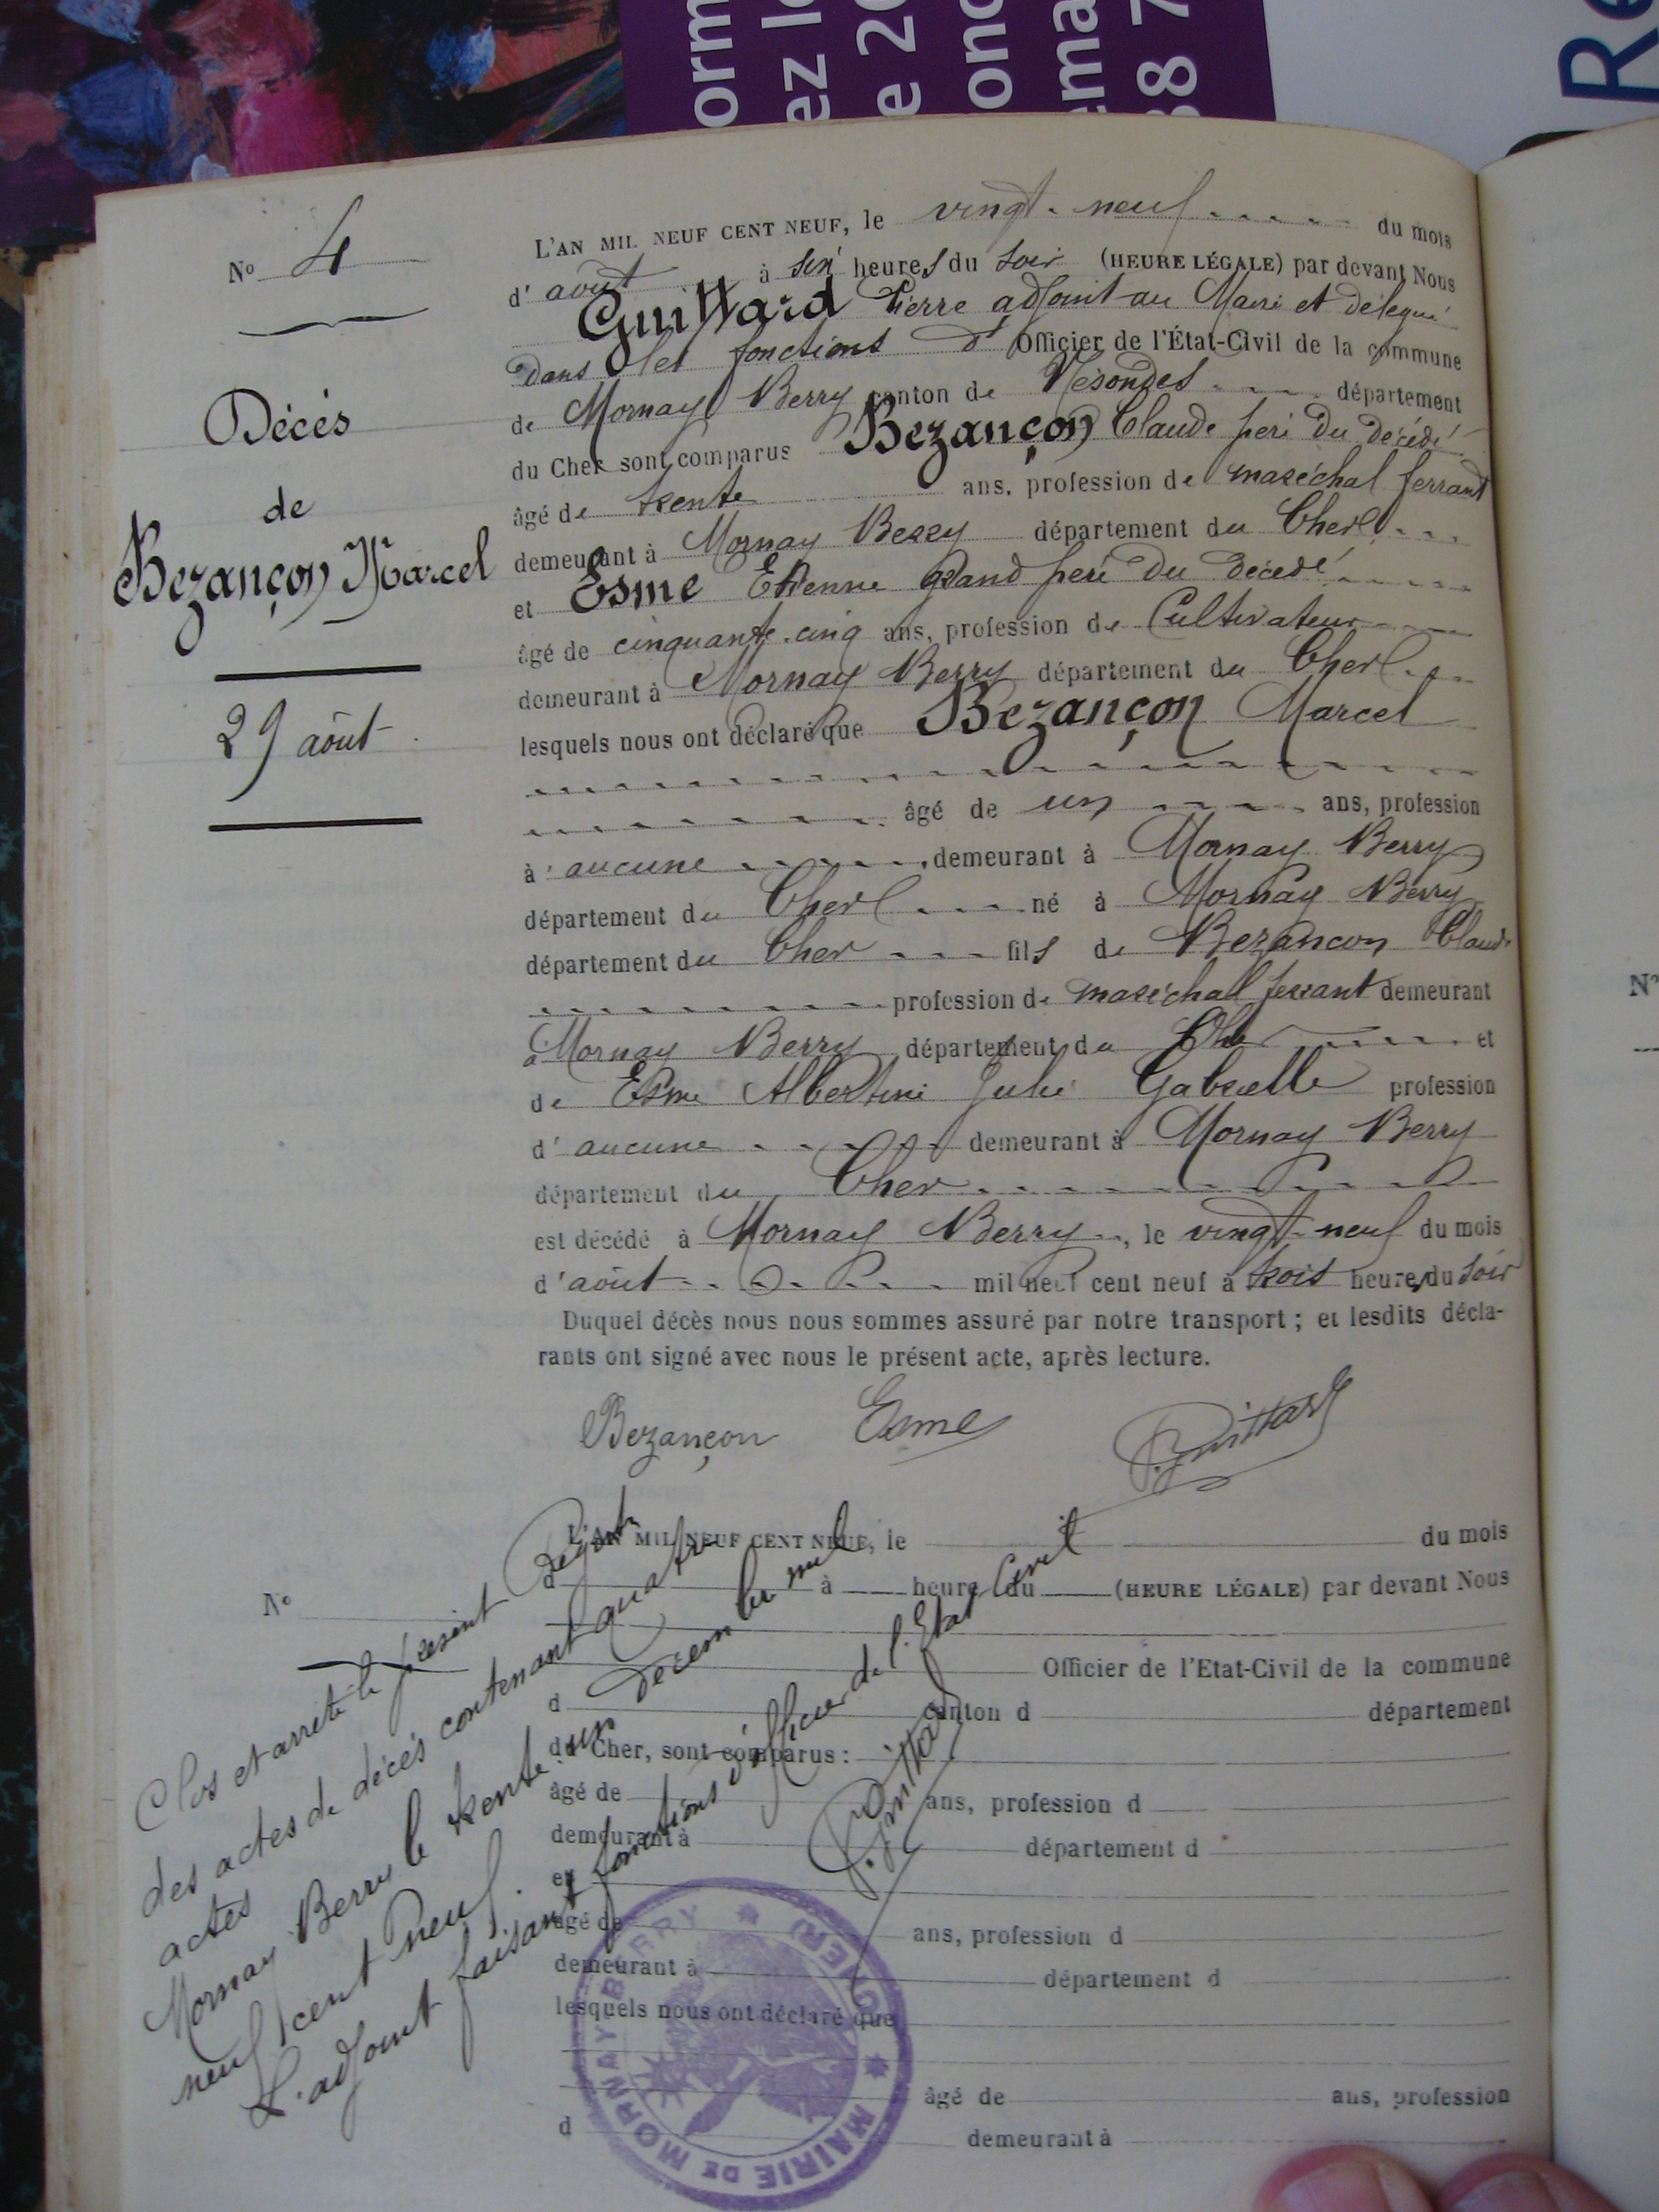 orm
ez l
e 20
onc
ema
38 7
Re
No 4
Décès
de
Bezançon Marcel
29 août
L'AN MIL NEUF CENT NEUF, le vingt-neuf du mois
d'août à six heures du soir (HEURE LÉGALE) par devant Nous
Guittard Pierre adjoint au Maire et délégué
dans les fonctions d'Officier de l'État-Civil de la commune
de Mornay Berry canton de Nérondes département
du Cher sont comparus Bezançon Claude père du décédé
âgé de trente ans, profession de maréchal ferrant
demeurant à Mornay Berry département du Cher
et Esme Etienne grand père du décédé
âgé de cinquante-cinq ans, profession de Cultivateur
demeurant à Mornay Berry département du Cher
lesquels nous ont déclaré que Bezançon Marcel
âgé de un ans, profession
à aucune, demeurant à Mornay Berry
département du Cher né à Mornay Berry
département du Cher fils de Bezancon Claude
profession de maréchal ferrant demeurant
à Mornay Berry département du Cher et
de Esme Albertine Julie Gabrielle profession
d'aucune demeurant à Mornay Berry
département du Cher
est décédé à Mornay Berry, le vingt-neuf du mois
d'août mil neuf cent neuf à trois heures du soir
Duquel décès nous nous sommes assuré par notre transport ; et lesdits décla-
rants ont signé avec nous le présent acte, après lecture.
Bezançon Esme P. Guittard
No
L'AN MIL NEUF CENT NEUF, le du mois
d à heure du (HEURE LÉGALE) par devant Nous
Officier de l'Etat-Civil de la commune
d canton d département
du Cher, sont comparus :
âgé de ans, profession d
demeurant à département d
et
âgé de ans, profession d
demeurant à département d
lesquels nous ont déclaré que
âgé de ans, profession
d demeurant à
Clos et arrêté le présent Registre
des actes de décès contenant quatre
actes
Mornay Berry le trente-un Décembre mil
neuf cent neuf.
L'adjoint faisant fonctions d'officier de l'Etat Civil
P. Guittard
MAIRIE DE MORNAY BERRY * (CHER) *
No